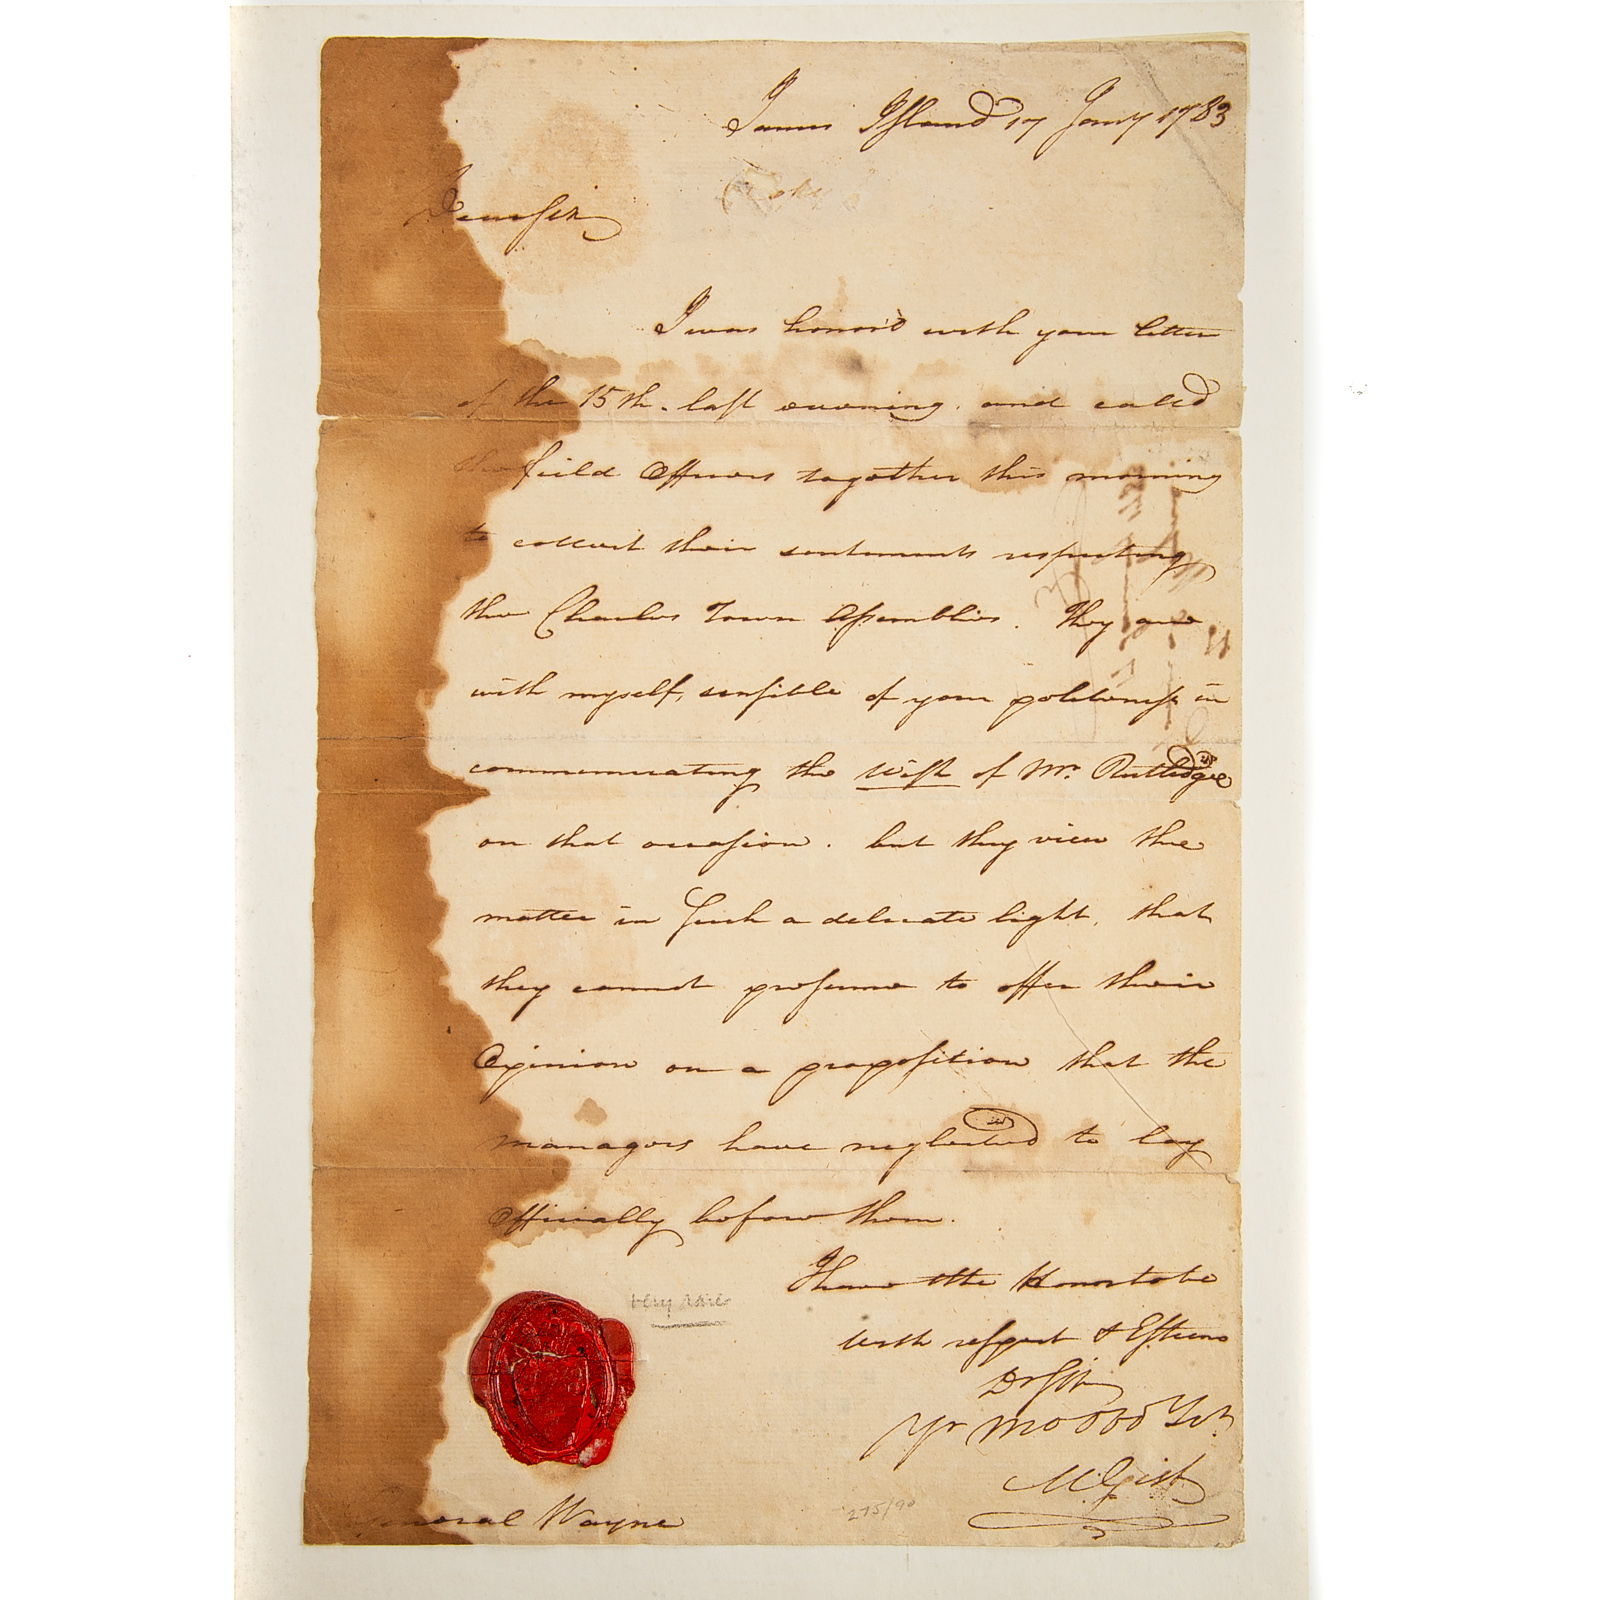 James Island 17 Jany 1783
Dear Sir
I was honor'd with your letter
of the 15th. last evening. and called
the field Officers together this morning
to collect their sentiments respecting
the Charles Town Assemblies. They are
with myself, sensible of your politeness in
communicating the wish of Mr. Rutledge
on that occasion. but they view the
matter in Such a delicate light, that
they cannot presume to offer their
Opinion on a proposition that the
managers have neglected to lay
Officially before them.
I have the Honor to be
with respect & Esteem
Dr Sir
Yr Mo Obd Svt
M. Gist
very rare
General Wayne
275/90